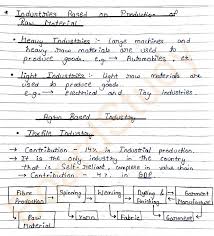 * Industries Based on Production of
Raw Material
• Heavy Industries :- Large machines and
heavy raw materials are used to
produce goods. e.g. → Automobiles, etc.
• Light Industries :- Light raw materials are
used to produce goods.
e.g. → Electrical and Toy Industries.
Agro Based Industry
• Textile Industry
→ Contribution - 14% in Industrial production.
→ It is the only industry in the country
that is Self-reliant, complete in value chain
→ Contribution - 4% in GDP.
Fibre Production → Spinning → Weaving → Dyeing & Finishing → Garment Manufacture
Raw Material Yarn Fabric Garment